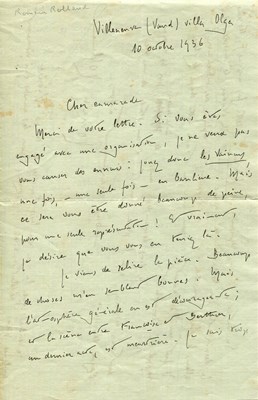 Romain Rolland
Villeneuve (Vaud) villa Olga
10 octobre 1936
Cher camarade
Merci de votre lettre. Si vous êtes
engagé avec une organisation, je ne veux pas
vous causer des ennuis : jouez donc les Vaincus,
une fois, – une seule fois – en banlieue. Mais
ce sera vous être donné beaucoup de peine,
pour une seule représentation ! Et vraiment
je désire que vous vous en teniez là.
Je viens de relire la pièce. Beaucoup
de choses m'en semblent bonnes. Mais
l'atmosphère générale en est décourageante ;
et la scène entre Françoise et Berthier,
au dernier acte, est meurtrière. Je suis